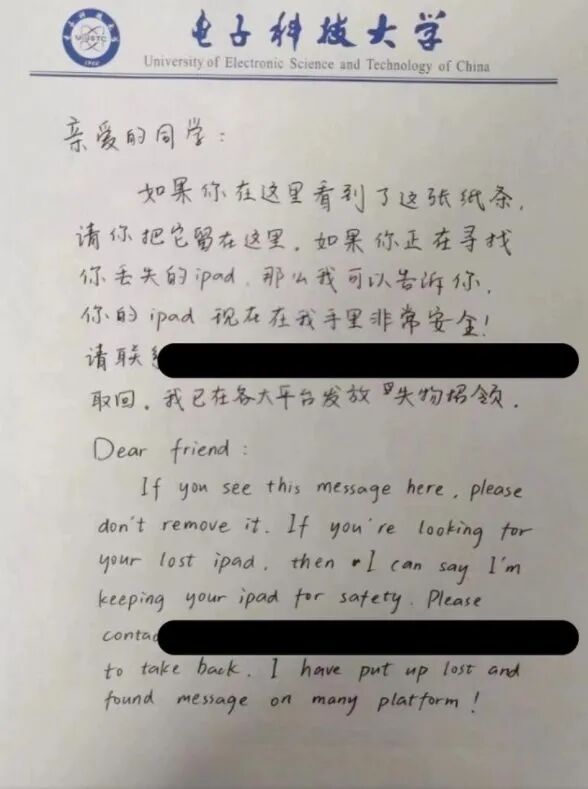 电子科技大学
University of Electronic Science and Technology of China
亲爱的同学：
如果你在这里看到了这张纸条，
请你把它留在这里，如果你正在寻找
你丢失的ipad，那么我可以告诉你，
你的ipad 现在在我手里非常安全！
请联系
取回，我已在各大平台发放失物招领．
Dear friend:
If you see this message here, please
don't remove it. If you're looking for
your lost ipad, then I can say I'm
keeping your ipad for safety. Please
contac
to take back. I have put up lost and
found message on many platform!